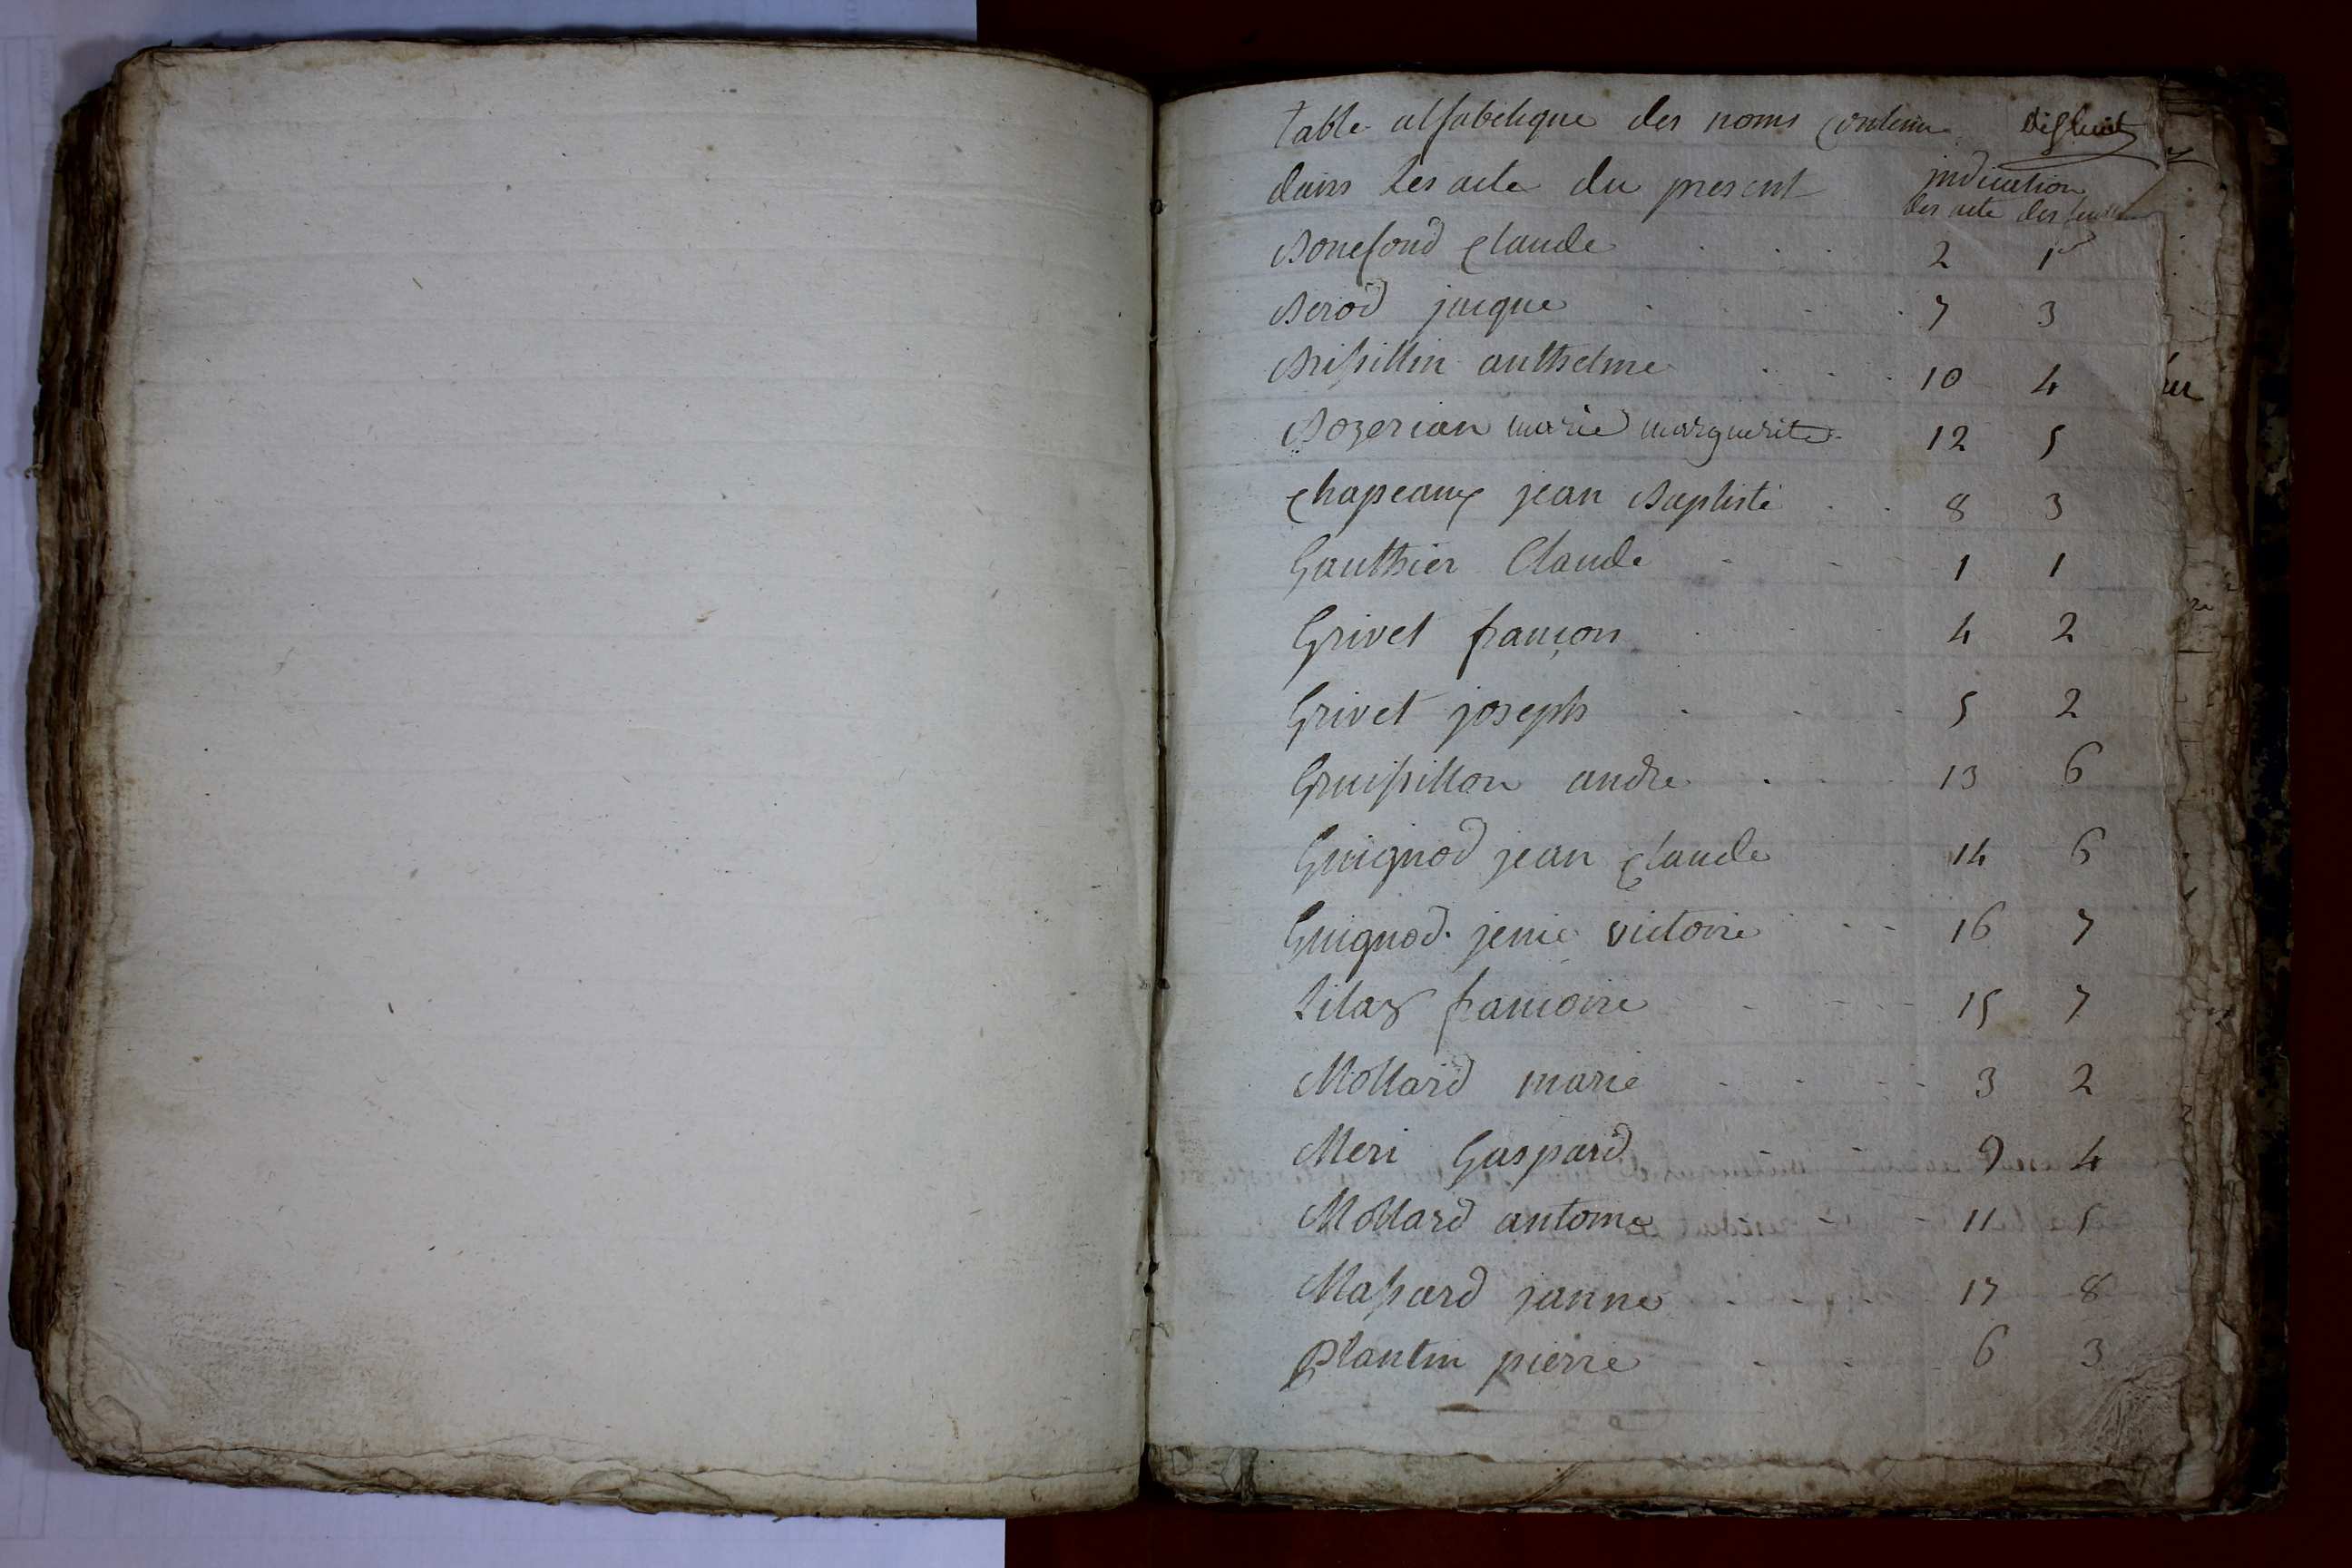 table alfabetique des noms contenu dixhuit
dans les acte du present indication
des acte des feuillet
Bonefond Claude 2 1
Berod jacque 7 3
Brissillin anthelme 10 4
Bozerian marie marguerite 12 5
chapeaux jean Baptiste 8 3
Gauthier Claude 1 1
Grivet françois 4 2
Grivet joseph 5 2
Gruissillon andre 13 6
Guignod jean Claude 14 6
Guignod jenie victoire 16 7
Lilaz francoise 15 7
Mollard marie 3 2
Meri Gaspard 9 4
Mollard antoine 11 5
Massard janne 17 8
Plantin pierre 6 3